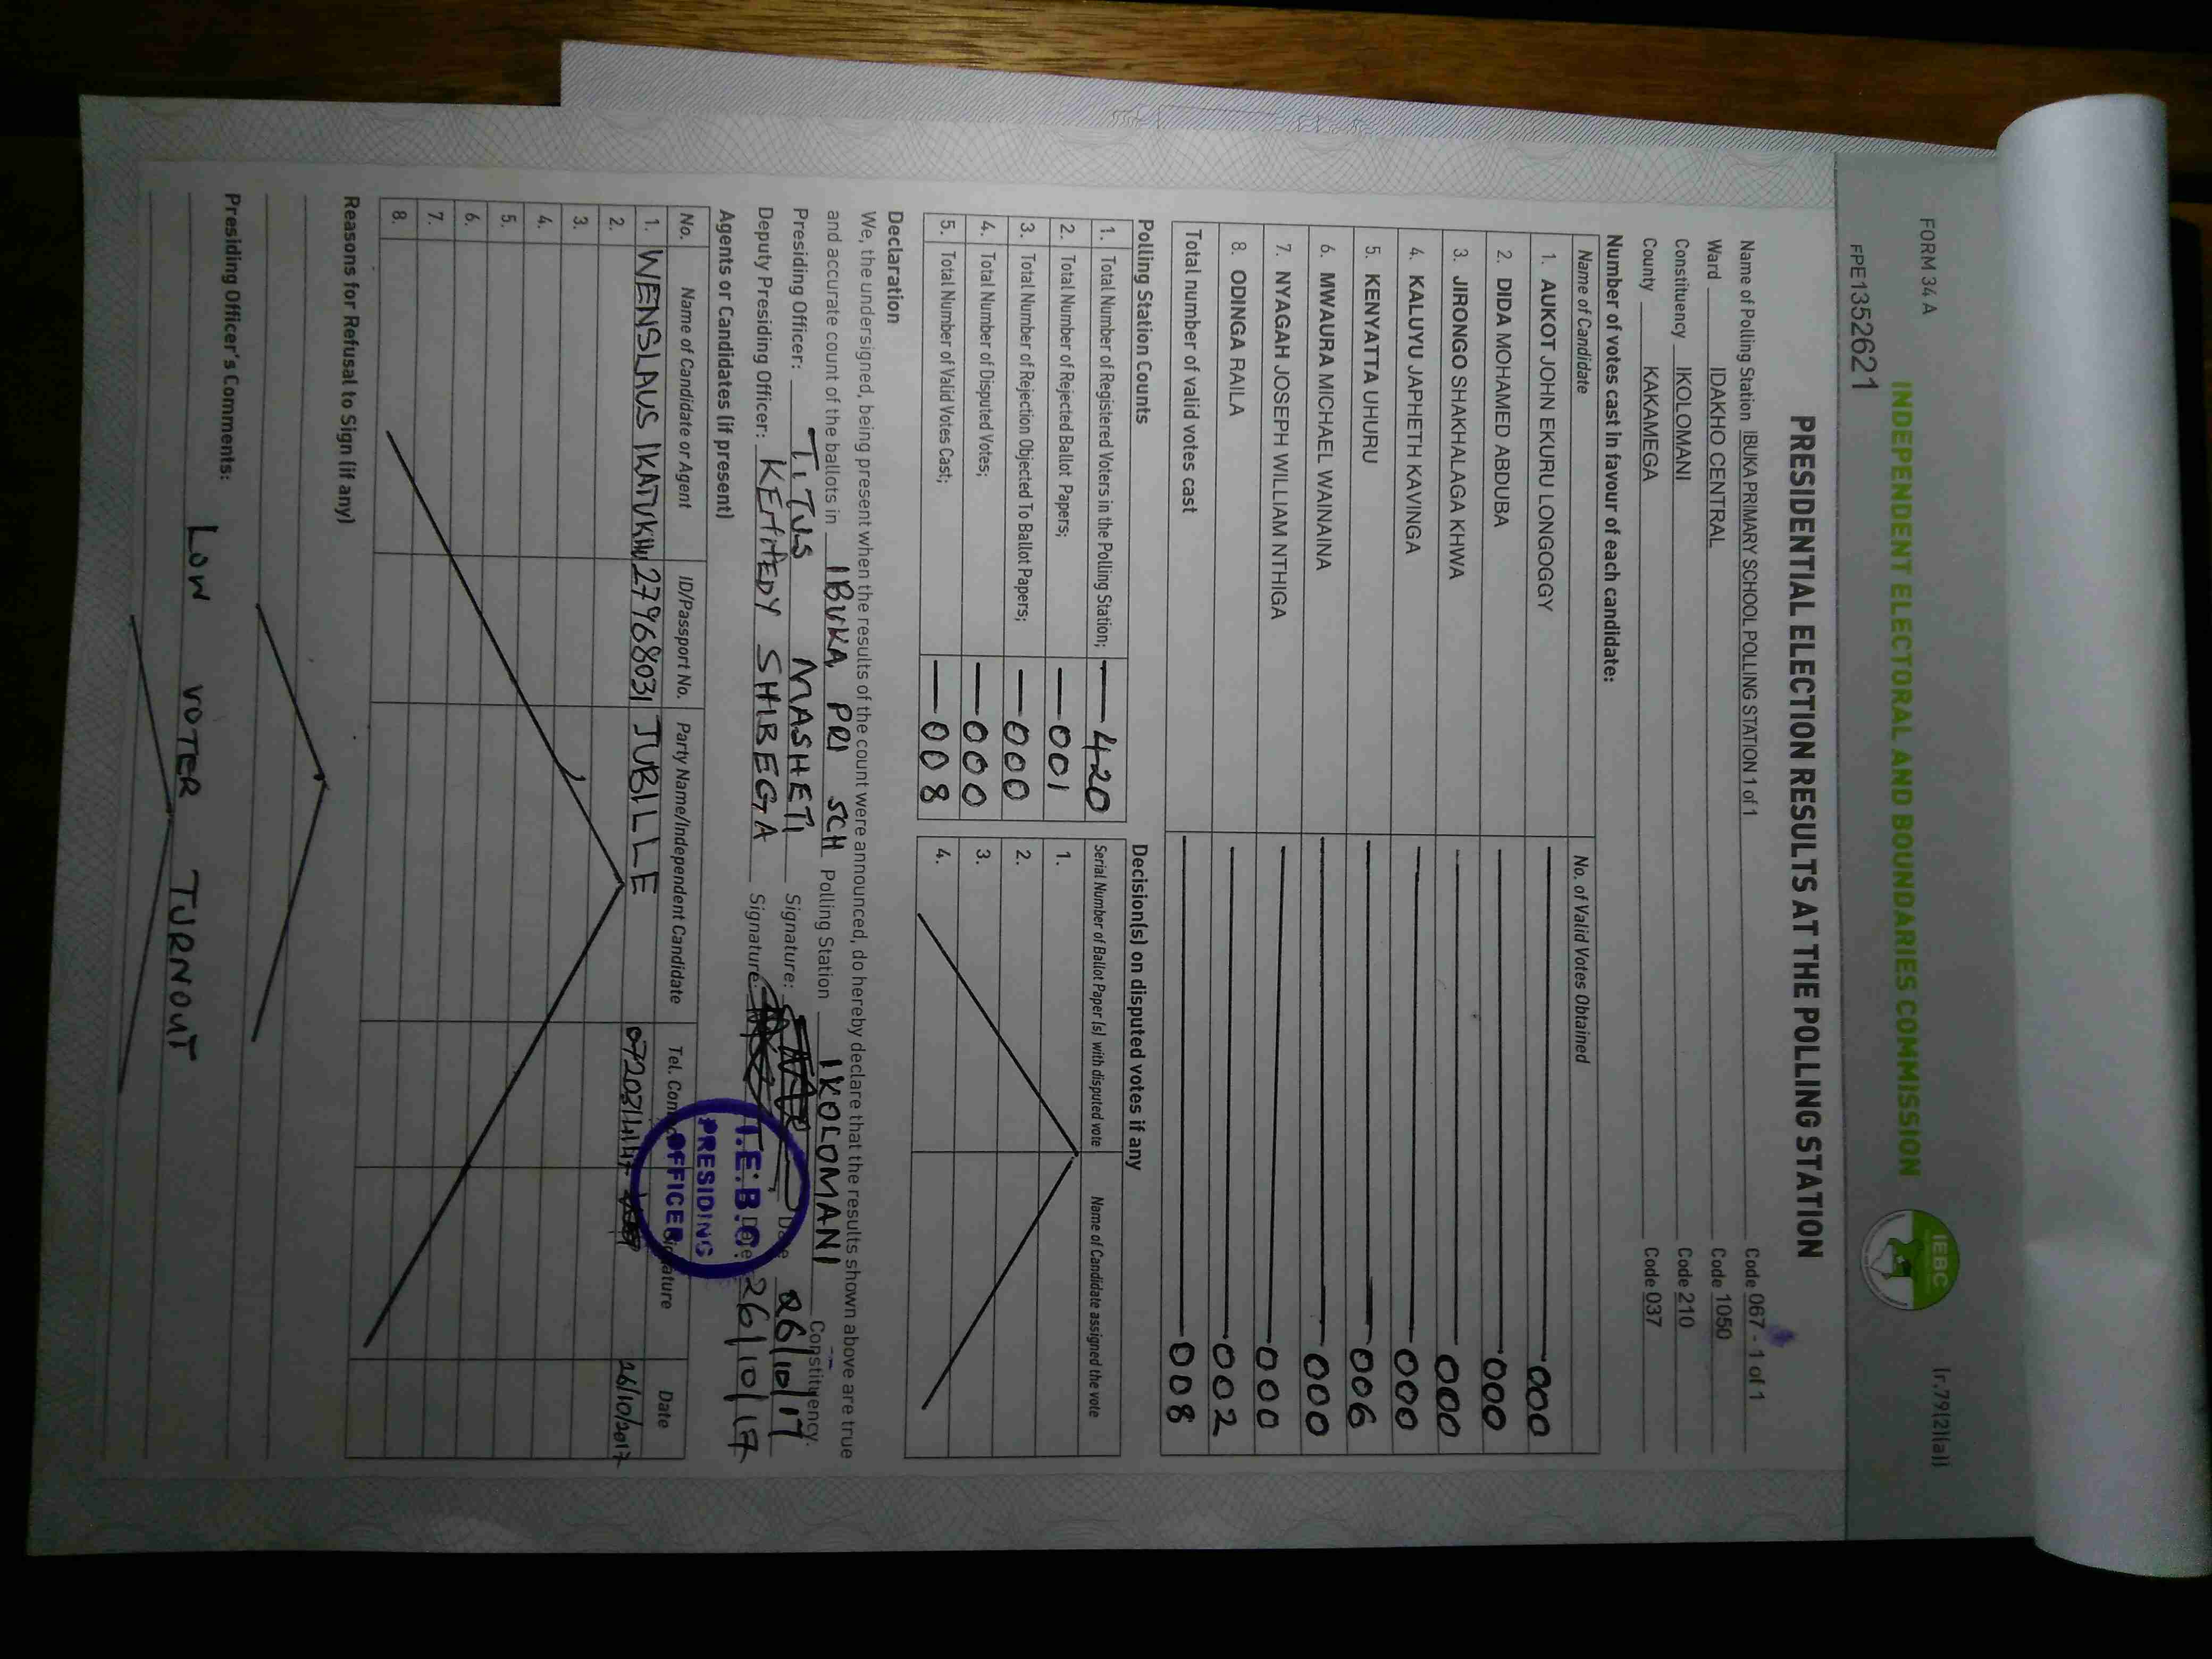 FORM 34 A
(r.79(2)(a))
INDEPENDENT ELECTORAL AND BOUNDARIES COMMISSION
IEBC
FPE1352621
PRESIDENTIAL ELECTION RESULTS AT THE POLLING STATION
Name of Polling Station IBUKA PRIMARY SCHOOL POLLING STATION 1 of 1 Code 067 - 1 of 1
Ward IDAKHO CENTRAL Code 1050
Constituency IKOLOMANI Code 210
County KAKAMEGA Code 037
Number of votes cast in favour of each candidate:
Name of Candidate No. of Valid Votes Obtained
1. AUKOT JOHN EKURU LONGOGGY 000
2. DIDA MOHAMED ABDUBA 000
3. JIRONGO SHAKHALAGA KHWA 000
4. KALUYU JAPHETH KAVINGA 000
5. KENYATTA UHURU 006
6. MWAURA MICHAEL WAINAINA 000
7. NYAGAH JOSEPH WILLIAM NTHIGA 000
8. ODINGA RAILA 002
Total number of valid votes cast 008
Polling Station Counts
1. Total Number of Registered Voters in the Polling Station; 420
2. Total Number of Rejected Ballot Papers; 001
3. Total Number of Rejection Objected To Ballot Papers; 000
4. Total Number of Disputed Votes; 000
5. Total Number of Valid Votes Cast; 008
Decision(s) on disputed votes if any
Serial Number of Ballot Paper (s) with disputed vote Name of Candidate assigned the vote
1.
2.
3.
4.
Declaration
We, the undersigned, being present when the results of the count were announced, do hereby declare that the results shown above are true
and accurate count of the ballots in IBUKA PRI SCH Polling Station IKOLOMANI Constituency.
Presiding Officer: TITUS MASHETI Signature: Date 26/10/17
Deputy Presiding Officer: KENNEDY SHIBEGA Signature: Date 26/10/17
I.E.B.C.
PRESIDING
OFFICER
Agents or Candidates (if present)
No. Name of Candidate or Agent ID/Passport No. Party Name/Independent Candidate Tel. Signature Date
1. WENSLAUS 27968031 JUBILLE 26/10/2017
2.
3.
4.
5.
6.
7.
8.
Reasons for Refusal to Sign (if any)
Presiding Officer's Comments:
LOW VOTER TURNOUT